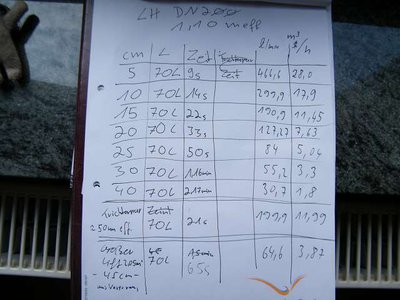 LH DN200
1,10 meff
cm L Zeit l/min m³/h
5 70L 9s Zeit 466,6 28,0
10 70L 14s 299,9 17,9
15 70L 22s 190,9 11,45
20 70L 33s 127,27 7,63
25 70L 50s 84 5,04
30 70L 1:16min 55,2 3,3
40 70L 2:17min 30,7 1,8
Zeint
250m eff 70L 21s 199,9 11,99
70L 65s 64,6 3,87
45cm